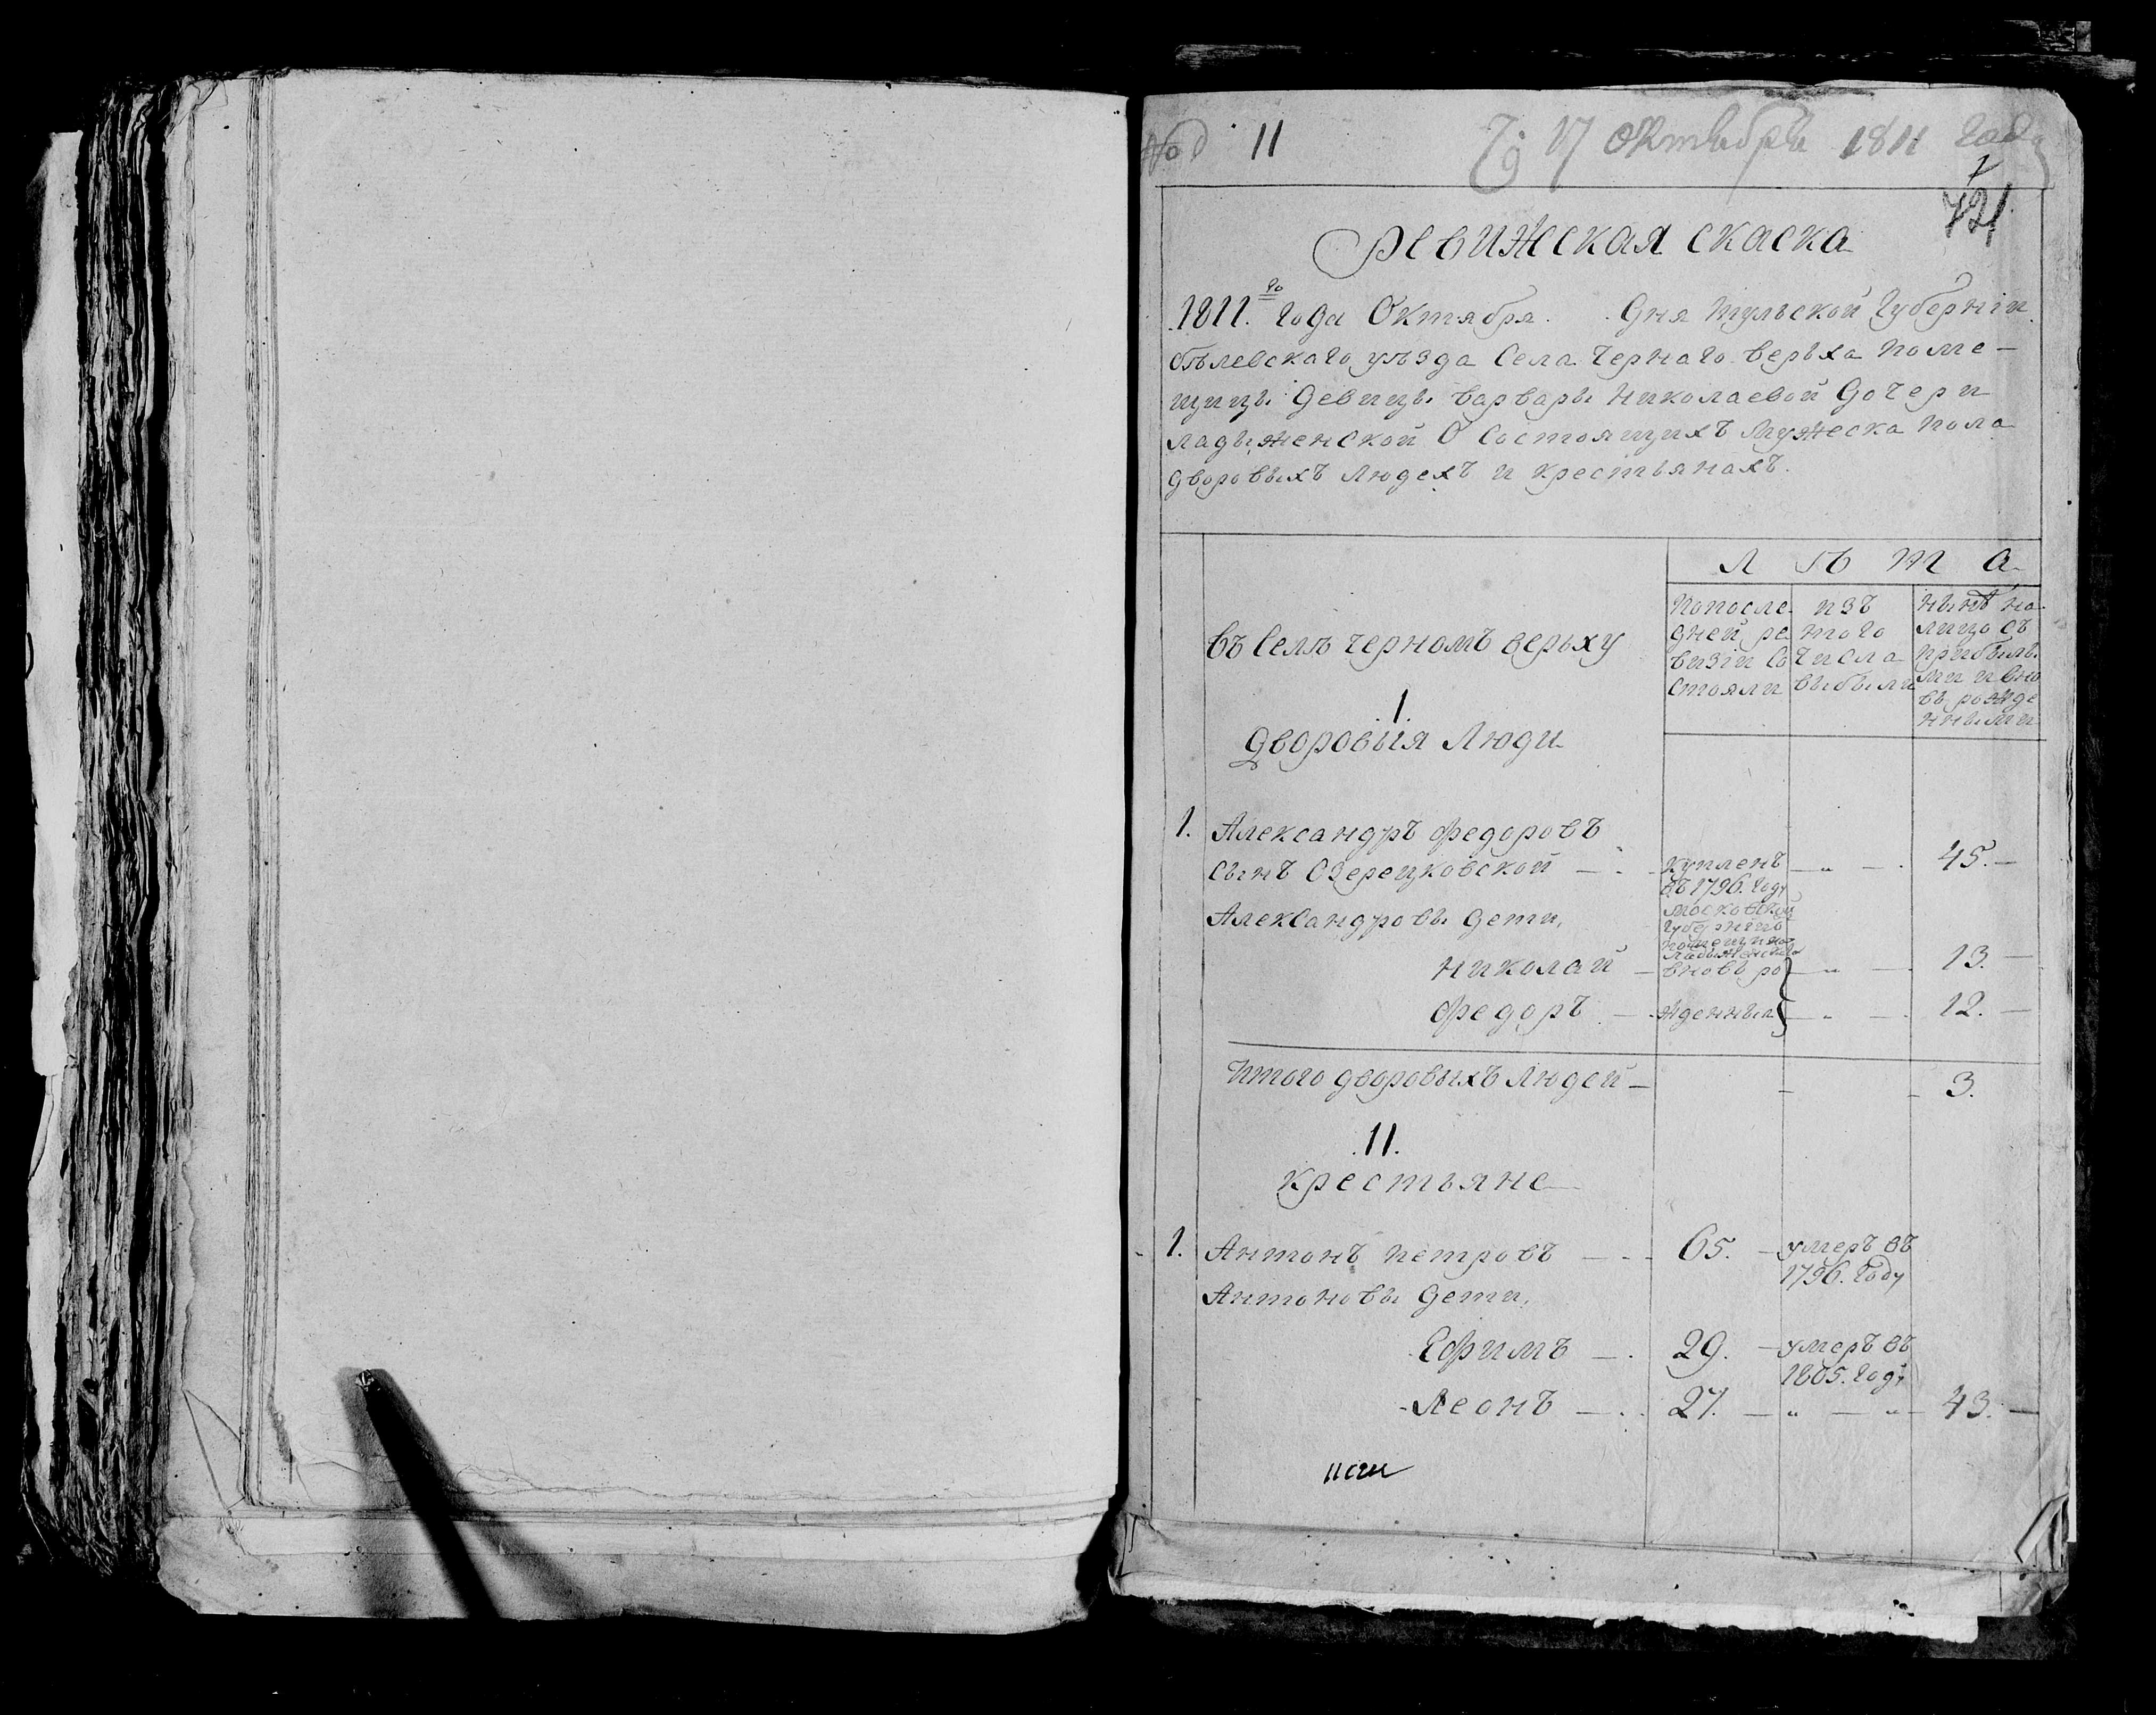 № 11
17 Октября 1811 году
721
Ревижская скаска
1811.го года Октября. Дня тульской губерніи
бѣлевскаго уѣзда Села Чернаго верьха поме-
щицы девицы варвары николаевой дочери
ладыженской О Состоящихъ мужеска пола
дворовыхъ людехъ и крестьянахъ.
Л ѣ т а
въ Селѣ черномъ верьху
Попосле
дней ре
визіи Со
стояли
изъ
того
числа
выбыли
нынѣ на
лицо съ
прибылы
ми и вно
вь рожде
нными
1.
Дворовыя Люди
1. Александръ Федоровъ
сынъ Озерецковской — Купленъ — „ — 45. —
въ 1796. году
Александровы дети, московской
губерніи
Ладыженскаго
николай — вновь ро — „ — 13. —
Федоръ — жденныя — „ — 12. —
Итого дворовыхъ людей — 3.
11.
крестьяне
1. Антонъ петровъ — 65. — умеръ въ
1796. году
Антоновы дети,
Ефимъ — 29. — умеръ въ
1805. году
Леонъ — 27. — „ — „ — 43. —